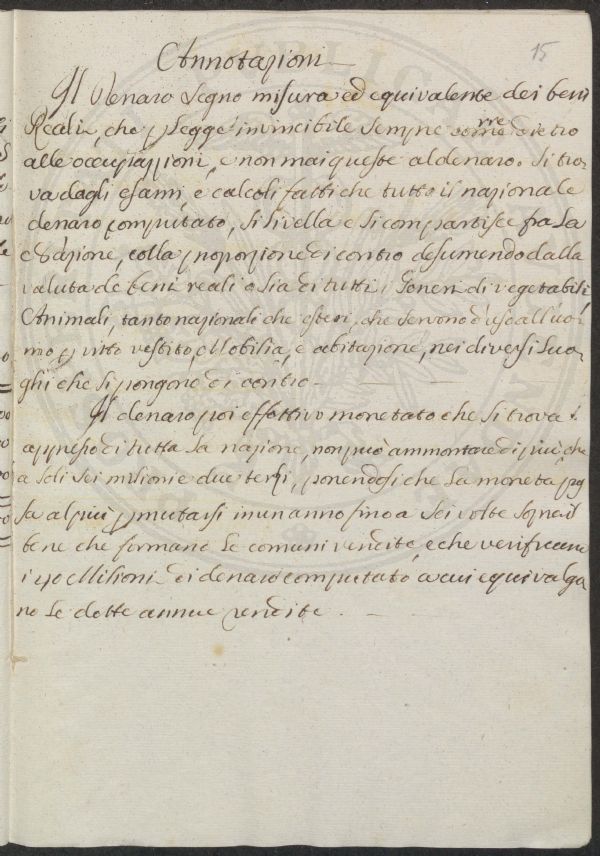 15
Annotazioni
Il denaro segno misura ed equivalente dei beni
Reali, che p legge invincibile sempre corre dietro
alle occupazioni, e non mai queste al denaro. Si tro-
va dagli esami, e calcoli fatti che tutto il nazionale
denaro computato, si livella e si compartisce fra la
Nazione, colla proporzione di contro desumendo dalla
valuta de beni reali o sia di tutti i Generi di vegetabili
Animali, tanto nazionali che esteri, che servono d'uso all'uo-
mo p vitto vestito, Mobilia, e abitazione, nei diversi luo-
ghi che si pongono di contro.
Il denaro poi effettivo monetato che si trova
appresso di tutta la nazione, non può ammontare di più che
a soli sei milioni e due terzi, ponendosi che la moneta pos
sa al più pmutarsi in un anno fino a sei volte sopra il
bene che formano le comuni rendite, e che verificano
i 40 Milioni di denaro computato a cui equivalga
no le dette annue rendite.